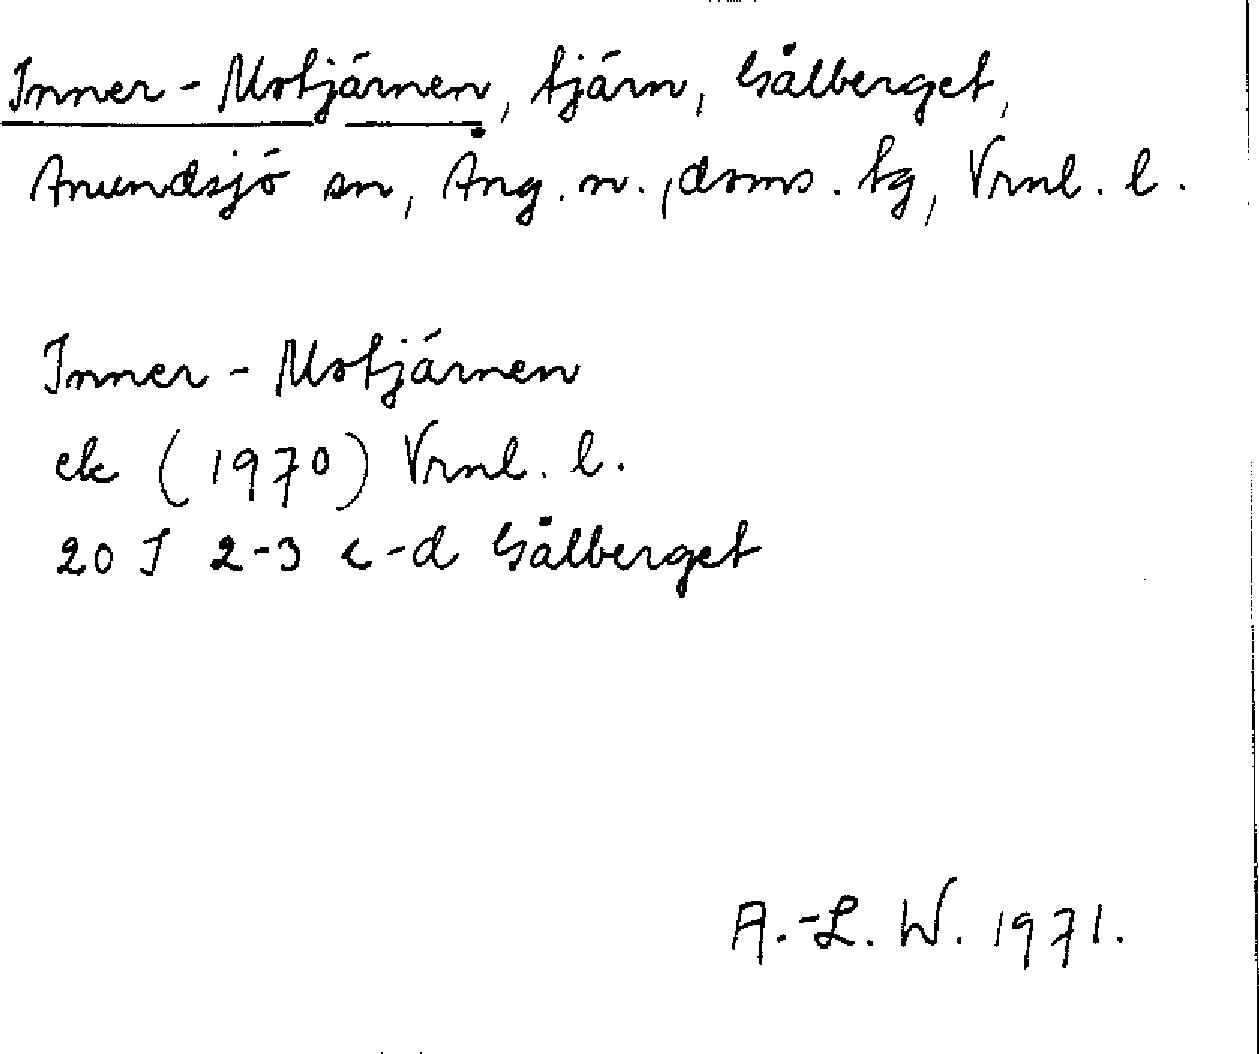 Inner-Motjärnen, tjärn, Gålberget,
Anundsjö sn, Ång. n., doms. tg, Vrnl. l.
Inner-Motjärnen
ek (1970) Vrnl. l.
20 J 2-3 c-d Gålberget
A.-L. W. 1971.